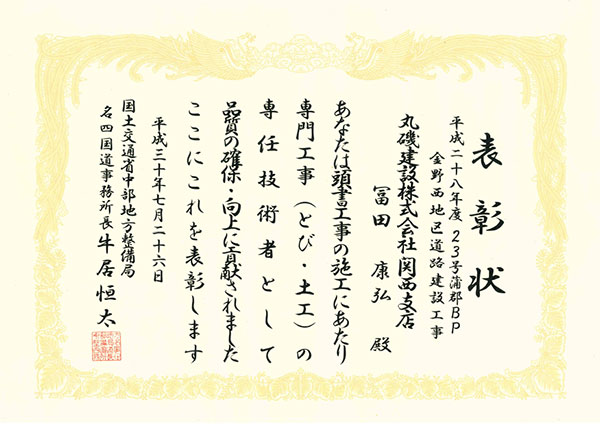 表彰状
平成二十八年度 23号蒲郡BP
金野西地区道路建設工事
丸磯建設株式会社関西支店
冨田 康弘 殿
あなたは頭書工事の施工にあたり
専門工事（とび・土工）の
専任技術者として
品質の確保・向上に貢献されました
ここにこれを表彰します
平成三十年七月二十六日
国土交通省中部地方整備局
名四国道事務所長 牛居恒太